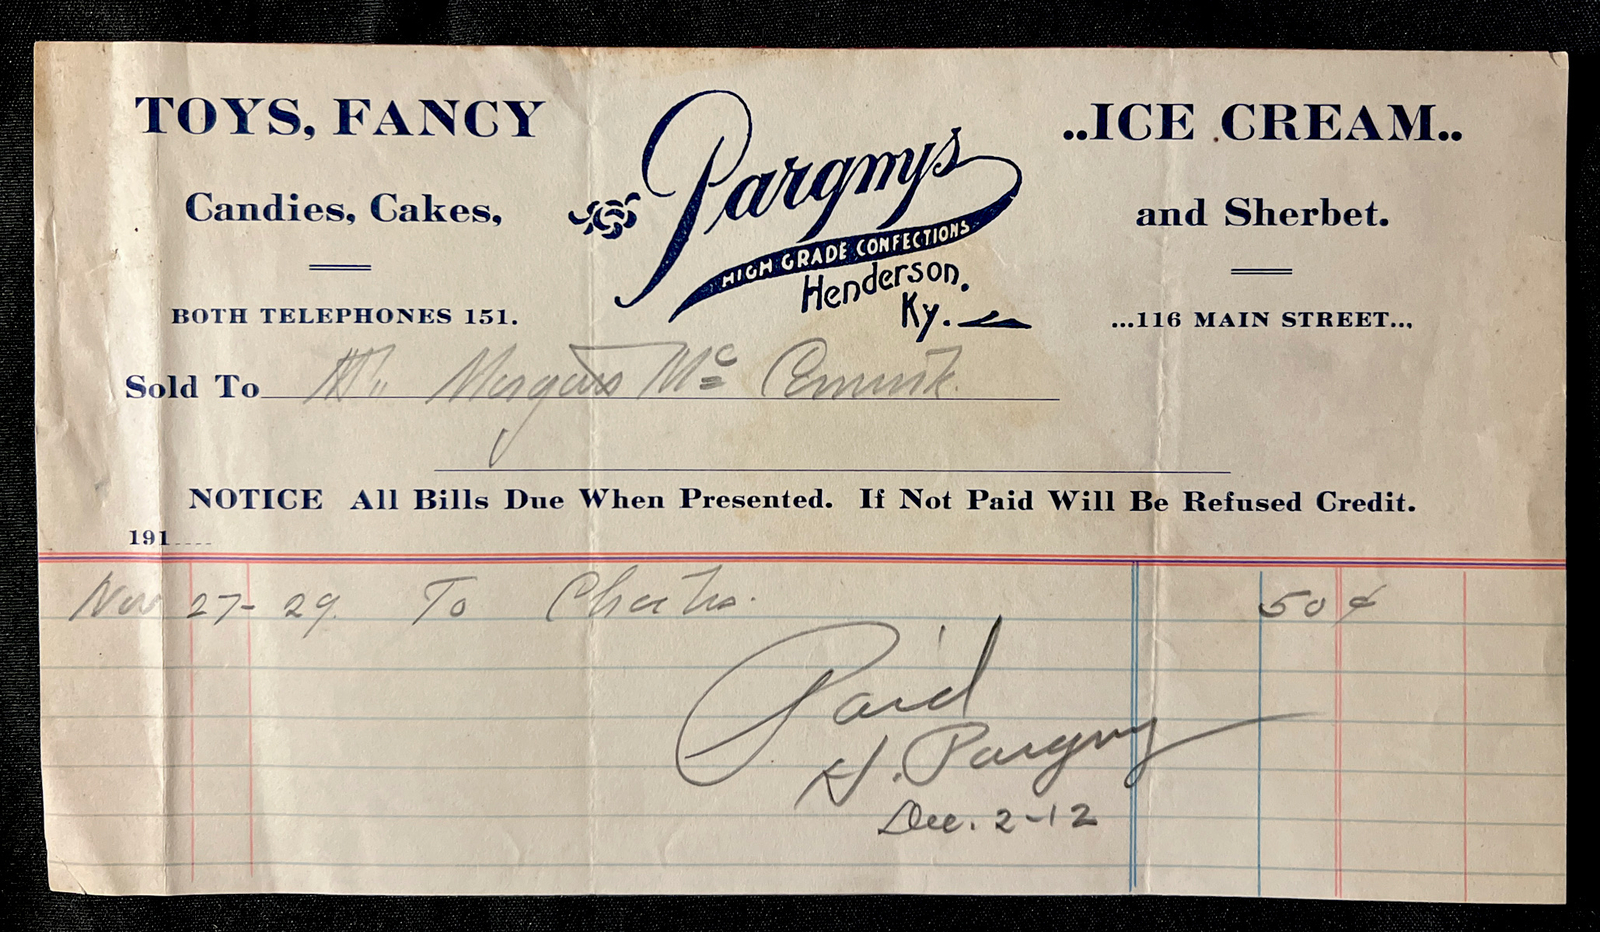 TOYS, FANCY
Candies, Cakes,
BOTH TELEPHONES 151.
Pargnys
HIGH GRADE CONFECTIONS
Henderson,
Ky.
..ICE CREAM..
and Sherbet.
...116 MAIN STREET...
Sold To Mc
NOTICE All Bills Due When Presented. If Not Paid Will Be Refused Credit.
191....
Nov 27-29. To 50¢
Paid
H. Pargny
Dec. 2-12